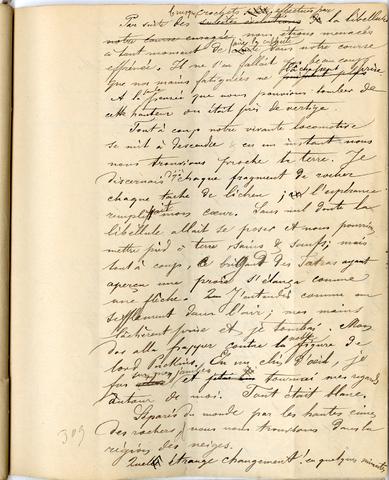 brusques crochets effectués par
Par suite des la libellule
notre course enragée, nous étions menacés
à tout moment de dans notre course
effrénée. Il ne s'en fallait beaucoup
que nos mains fatiguées ne lâchassent prise
A la pensée que nous pouvions tomber de
cette hauteur on était pris de vertige.
Tout à coup notre vivante locomotive
se mit à descendre & en un instant nous
nous trouvions proche de terre. Je
discernais chaque fragment de rocher
chaque tache de lichen; l'espérance
remplit mon cœur. Sans nul doute la
libellule allait se poser et nous pourrions
mettre pied à terre sains & saufs; mais
tout à coup, le brigand des airs ayant
aperçu une proie s'élança comme
une flèche. J'entendis comme un
sifflement dans l'air; mes mains
lâchèrent prise et je tombai. Mon
dos alla frapper contre la molle figure de
lord Puckins. En un clin d'œil, je
fus sur mes jambes et tournai mes regards
autour de moi. Tout était blanc.
Séparés du monde par les hautes cimes
des rochers, nous nous trouvions dans la
région des neiges.
Quel étrange changement! en quelques minutes,
309